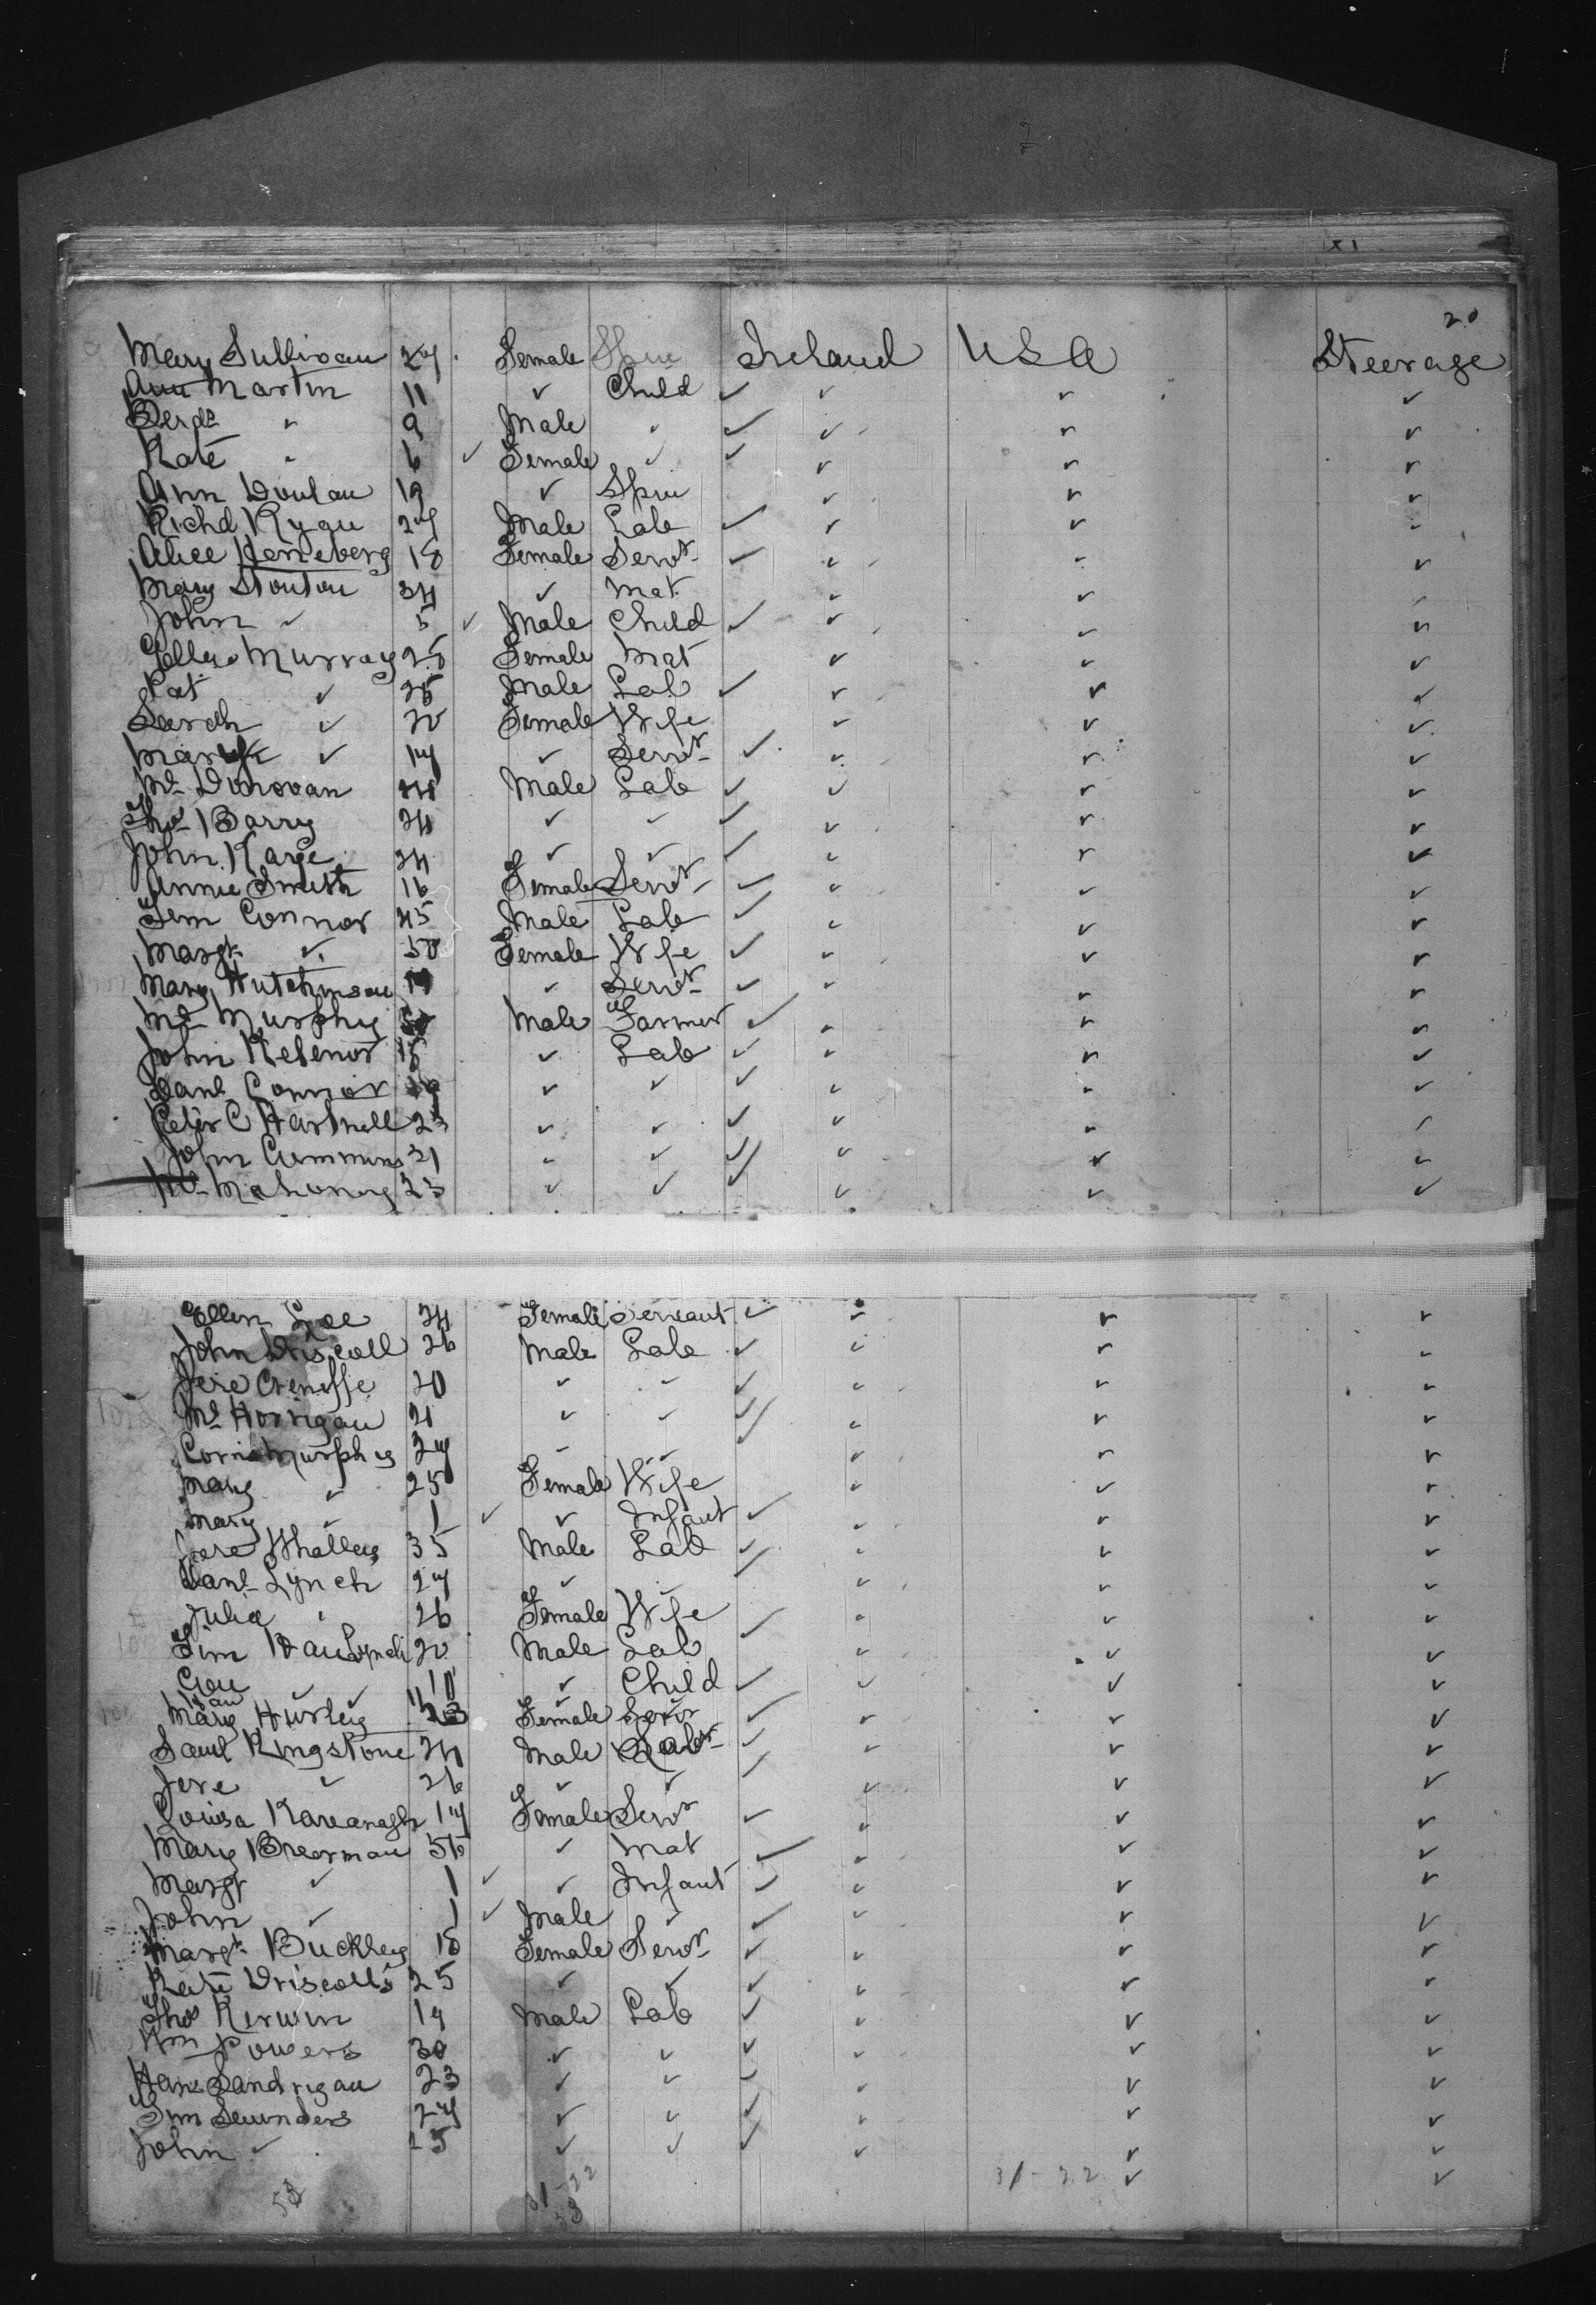 20
Mary Sullivan 27 Female Spin Ireland USA Steerage
Ann Martin 11 ✓ Child ✓ ✓ ✓ ✓
9 Male ✓ ✓ ✓ ✓ ✓
Kate " 6 ✓ Female ✓ ✓ ✓ ✓ ✓
Ann Donlan 19 ✓ Spin ✓ ✓ ✓
Richd Ryan 27 Male Lab ✓ ✓ ✓ ✓
Alice Heneberg 18 Female Servt ✓ ✓ ✓ ✓
Mary Stonton 34 ✓ Mat ✓ ✓ ✓
John ✓ 5 ✓ Male Child ✓ ✓ ✓ ✓
Ellen Murray 25 Female Mat ✓ ✓ ✓
Pat ✓ 25 Male Lab ✓ ✓ ✓ ✓
Sarah ✓ 20 Female Wife ✓ ✓ ✓
✓ 17 ✓ Servt ✓ ✓ ✓ ✓
Ml Donovan Male Lab ✓ ✓ ✓ ✓
Thos Barry 24 ✓ ✓ ✓ ✓ ✓ ✓
John Kane 24 ✓ ✓ ✓ ✓ ✓ ✓
Annie Smith 16 Female Servt ✓ ✓ ✓ ✓
Jem Connor 45 Male Lab ✓ ✓ ✓ ✓
Margt ✓ 50 Female Wife ✓ ✓ ✓ ✓
Mary Hutchinson 19 ✓ Servt ✓ ✓ ✓ ✓
Ml Murphy 50 Male Farmer ✓ ✓ ✓ ✓
John 18 ✓ Lab ✓ ✓ ✓ ✓
Danl Connor ✓ ✓ ✓ ✓ ✓ ✓
Peter C Hartnell 23 ✓ ✓ ✓ ✓ ✓ ✓
John Cummins 21 ✓ ✓ ✓ ✓ ✓ ✓
Ml Mahoney 23 ✓ ✓ ✓ ✓ ✓ ✓
Ellen Lee 24 Female Servant ✓ ✓ ✓ ✓
John Driscoll 26 Male Lab ✓ ✓ ✓ ✓
Jere 20 ✓ ✓ ✓ ✓ ✓ ✓
Ml Horrigan 21 ✓ ✓ ✓ ✓ ✓ ✓
Corns Murphy 27 ✓ ✓ ✓ ✓ ✓ ✓
Mary ✓ 25 Female Wife ✓ ✓ ✓
Mary ✓ 1 ✓ ✓ Infant ✓ ✓ ✓ ✓
Jere Whalley 35 Male Lab ✓ ✓ ✓ ✓
Danl Lynch 27 ✓ ✓ ✓ ✓ ✓ ✓
Julia " 26 Female Wife ✓ ✓ ✓ ✓
Tim Lynch 20 Male Lab ✓ ✓ ✓
✓ ✓ 10 ✓ Child ✓ ✓ ✓ ✓
Mary Hurley 23 Female Servt ✓ ✓ ✓ ✓
Saml Kingstone 24 Male Labr ✓ ✓ ✓ ✓
Jere ✓ 26 ✓ ✓ ✓ ✓ ✓ ✓
Louisa Kavanagh 17 Female Servt ✓ ✓ ✓ ✓
Mary Breerman 56 ✓ Mat ✓ ✓ ✓ ✓
Margt ✓ 1 ✓ ✓ Infant ✓ ✓ ✓ ✓
John ✓ 1 ✓ Male ✓ ✓ ✓ ✓ ✓
Margt Buckley 18 Female Servt ✓ ✓ ✓ ✓
Kate Driscoll 25 ✓ ✓ ✓ ✓ ✓ ✓
Thos Kerwin 19 Male Lab ✓ ✓ ✓ ✓
Wm Powers 30 ✓ ✓ ✓ ✓ ✓ ✓
Hans Landrigan 23 ✓ ✓ ✓ ✓ ✓ ✓
Jim Saunders 27 ✓ ✓ ✓ ✓ ✓ ✓
John ✓ 25 ✓ ✓ ✓ ✓ ✓ ✓
53 31-22 31-22 ✓ ✓
53